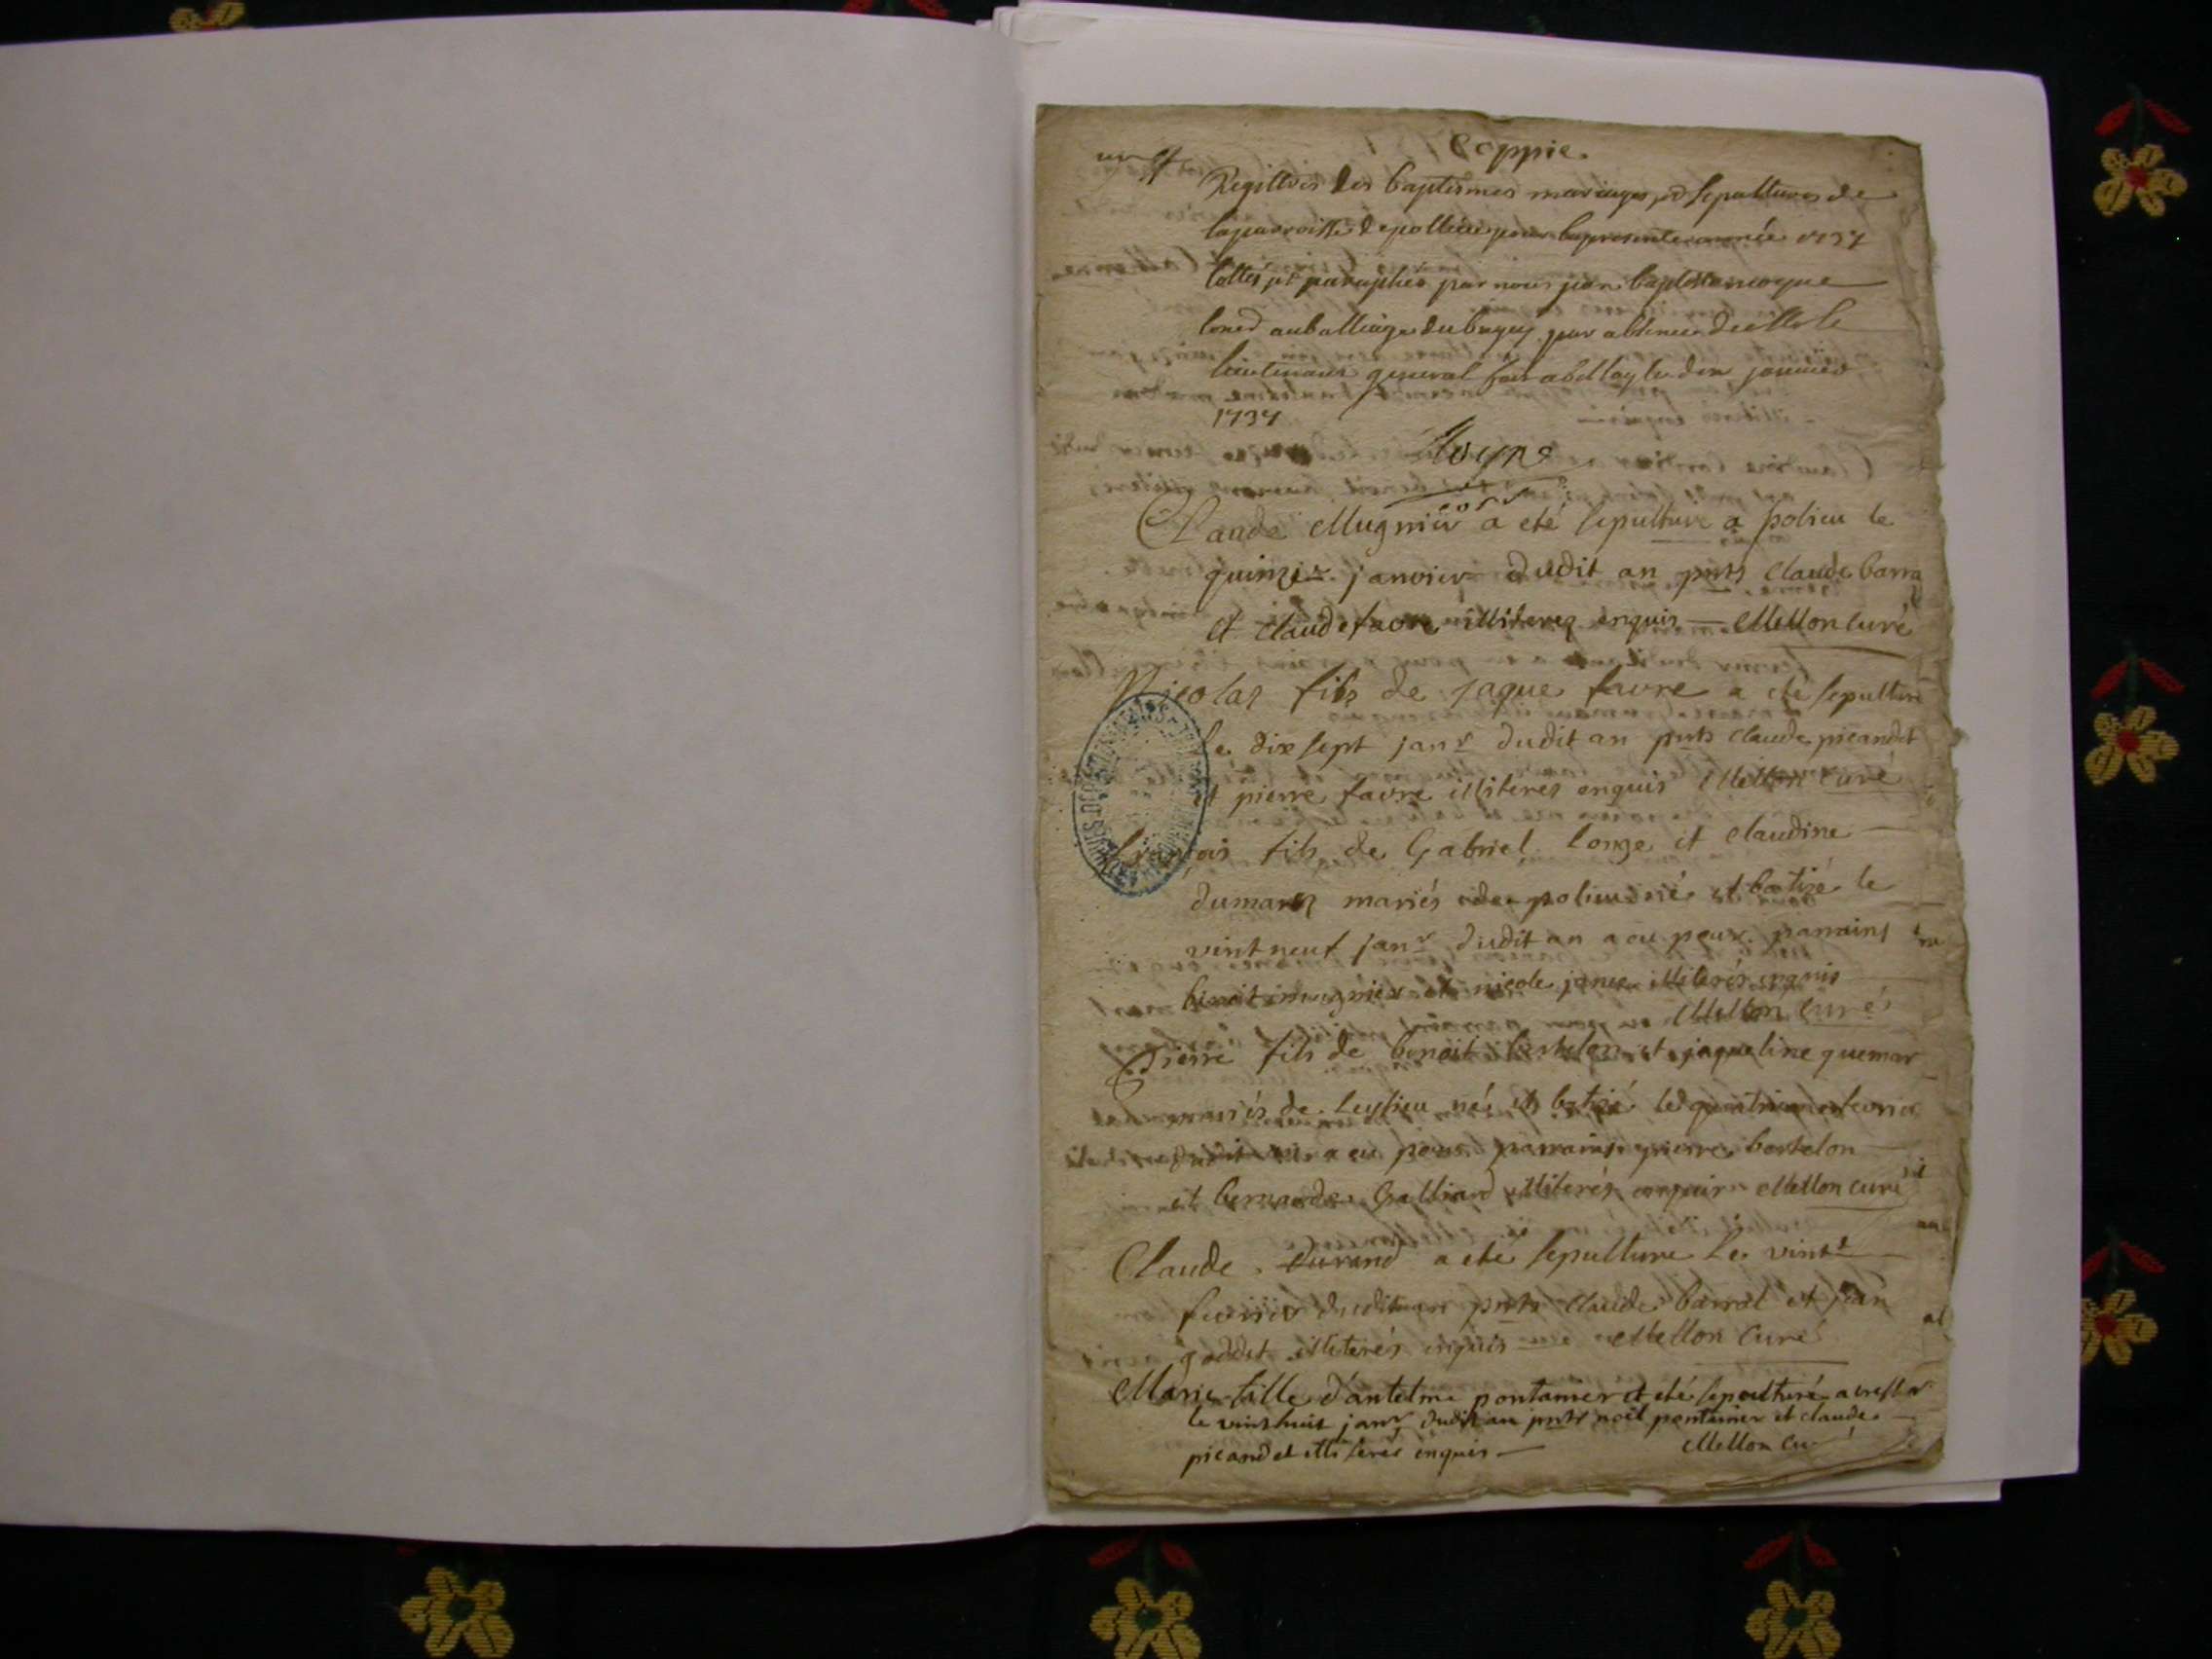 Coppie.
Registres des baptesmes mariages et sepultures de
la parroisse de pollieu pour la presente année 1737
cottés et paraphés par nous jean baptiste
conseiller au balliage du bugey par absence de Mr le
lieutenant general fait a belley le dix janvier
1737
Claude Mugnier a eté sepulturé a polieu le
quinze janvier dudit an pnts claude barra
et claude favre illiterez enquis — Mellon curé
Nicolas fils de jaque favre a eté sepulturé
le dix sept janr dudit an pnts claude picandet
et pierre favre illiteres enquis Mellon curé
françois fils de Gabriel longe et claudine
dumarez mariés de polieu né et batizé le
vint neuf janr dudit an a eu pour parrains
benoit mugnier et nicole janse illiterés enquis
Mellon Curé
Pierre fils de benoit bertelon et jaqueline quemar
mariés de Leylieu né et batizé le quatrieme fevrier
dudit an a eu pour parrains pierre bertelon
et bernarde Galliand illiterés enquis Mellon curé
Claude Durand a eté sepulture le vint
fevrier dudit an pnts claude barral et jean
goddet illiterés enquis Mellon Curé
Marie fille d'antelme pontanier et eté sepulturé a
le vint huit janr dudit an pnts noël pontanier et claude
picandet illiterés enquis — Mellon curé